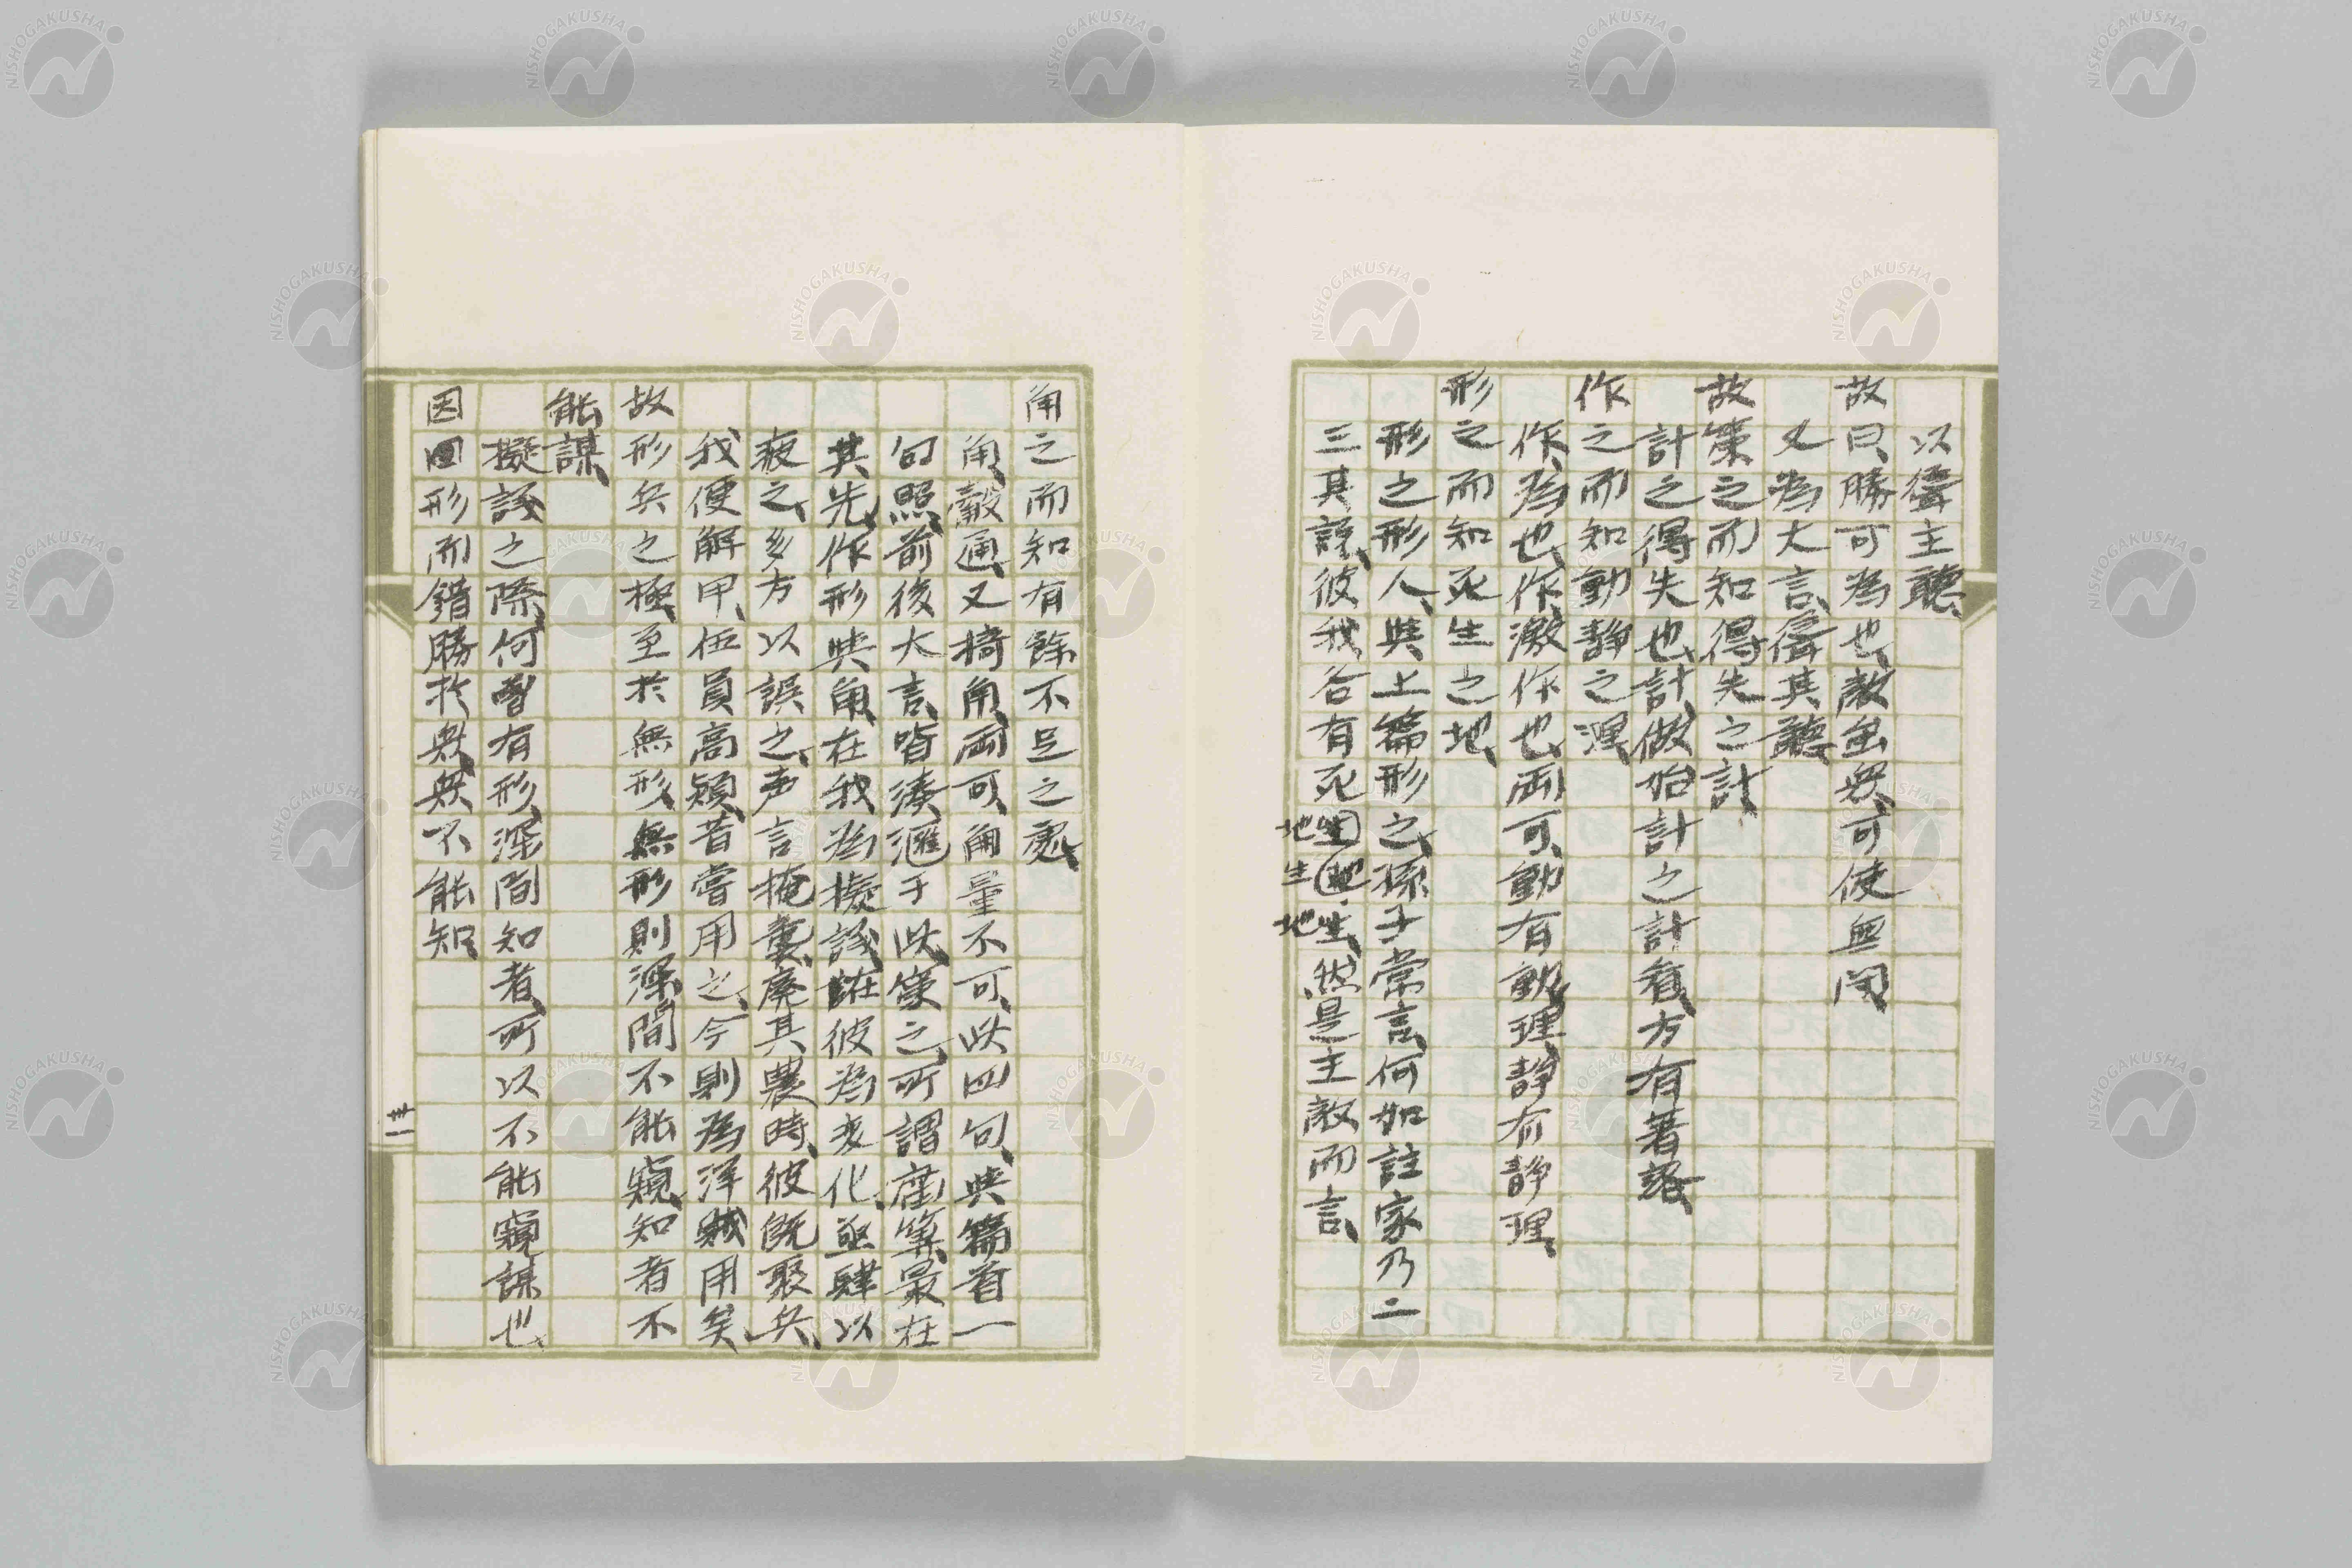 以聳主聽、
故曰、勝可為也、敵虽衆、可使無鬥、
又為大言、聳其聽、
故策之而知得失之計、
計之得失也、計、做始計之計看、方有著落、
作之而知動静之理、
作、為也、作、激作也、両可、動有動理、静有静理、
形之而知死生之地、
形之形人、與上篇形之、孫子常言、何如註家乃二
三其説、彼我各有死地生地、然是主敵而言、
角之而知有餘不足之處、
角、觳通、又掎角、両可、角量不可、此四句、與篇首一
句照、前後大言、皆湊滙于此、策之、所謂庿算、最在
其先、作形與角、在我為擬議、誑彼為変化、亟肄以
疲之、多方以誤之、声言掩襲、廃其農時、彼既聚兵、
我便解甲、伍員高熲、昔嘗用之、今則為洋賊用矣
故形兵之極、至於無形、無形則深間不能窺、知者不
能謀、
擬議之際、何曽有形、深間知者、所以不能窺謀也
因形而錯勝於衆、衆不能知、
NISHOGAKUSHA